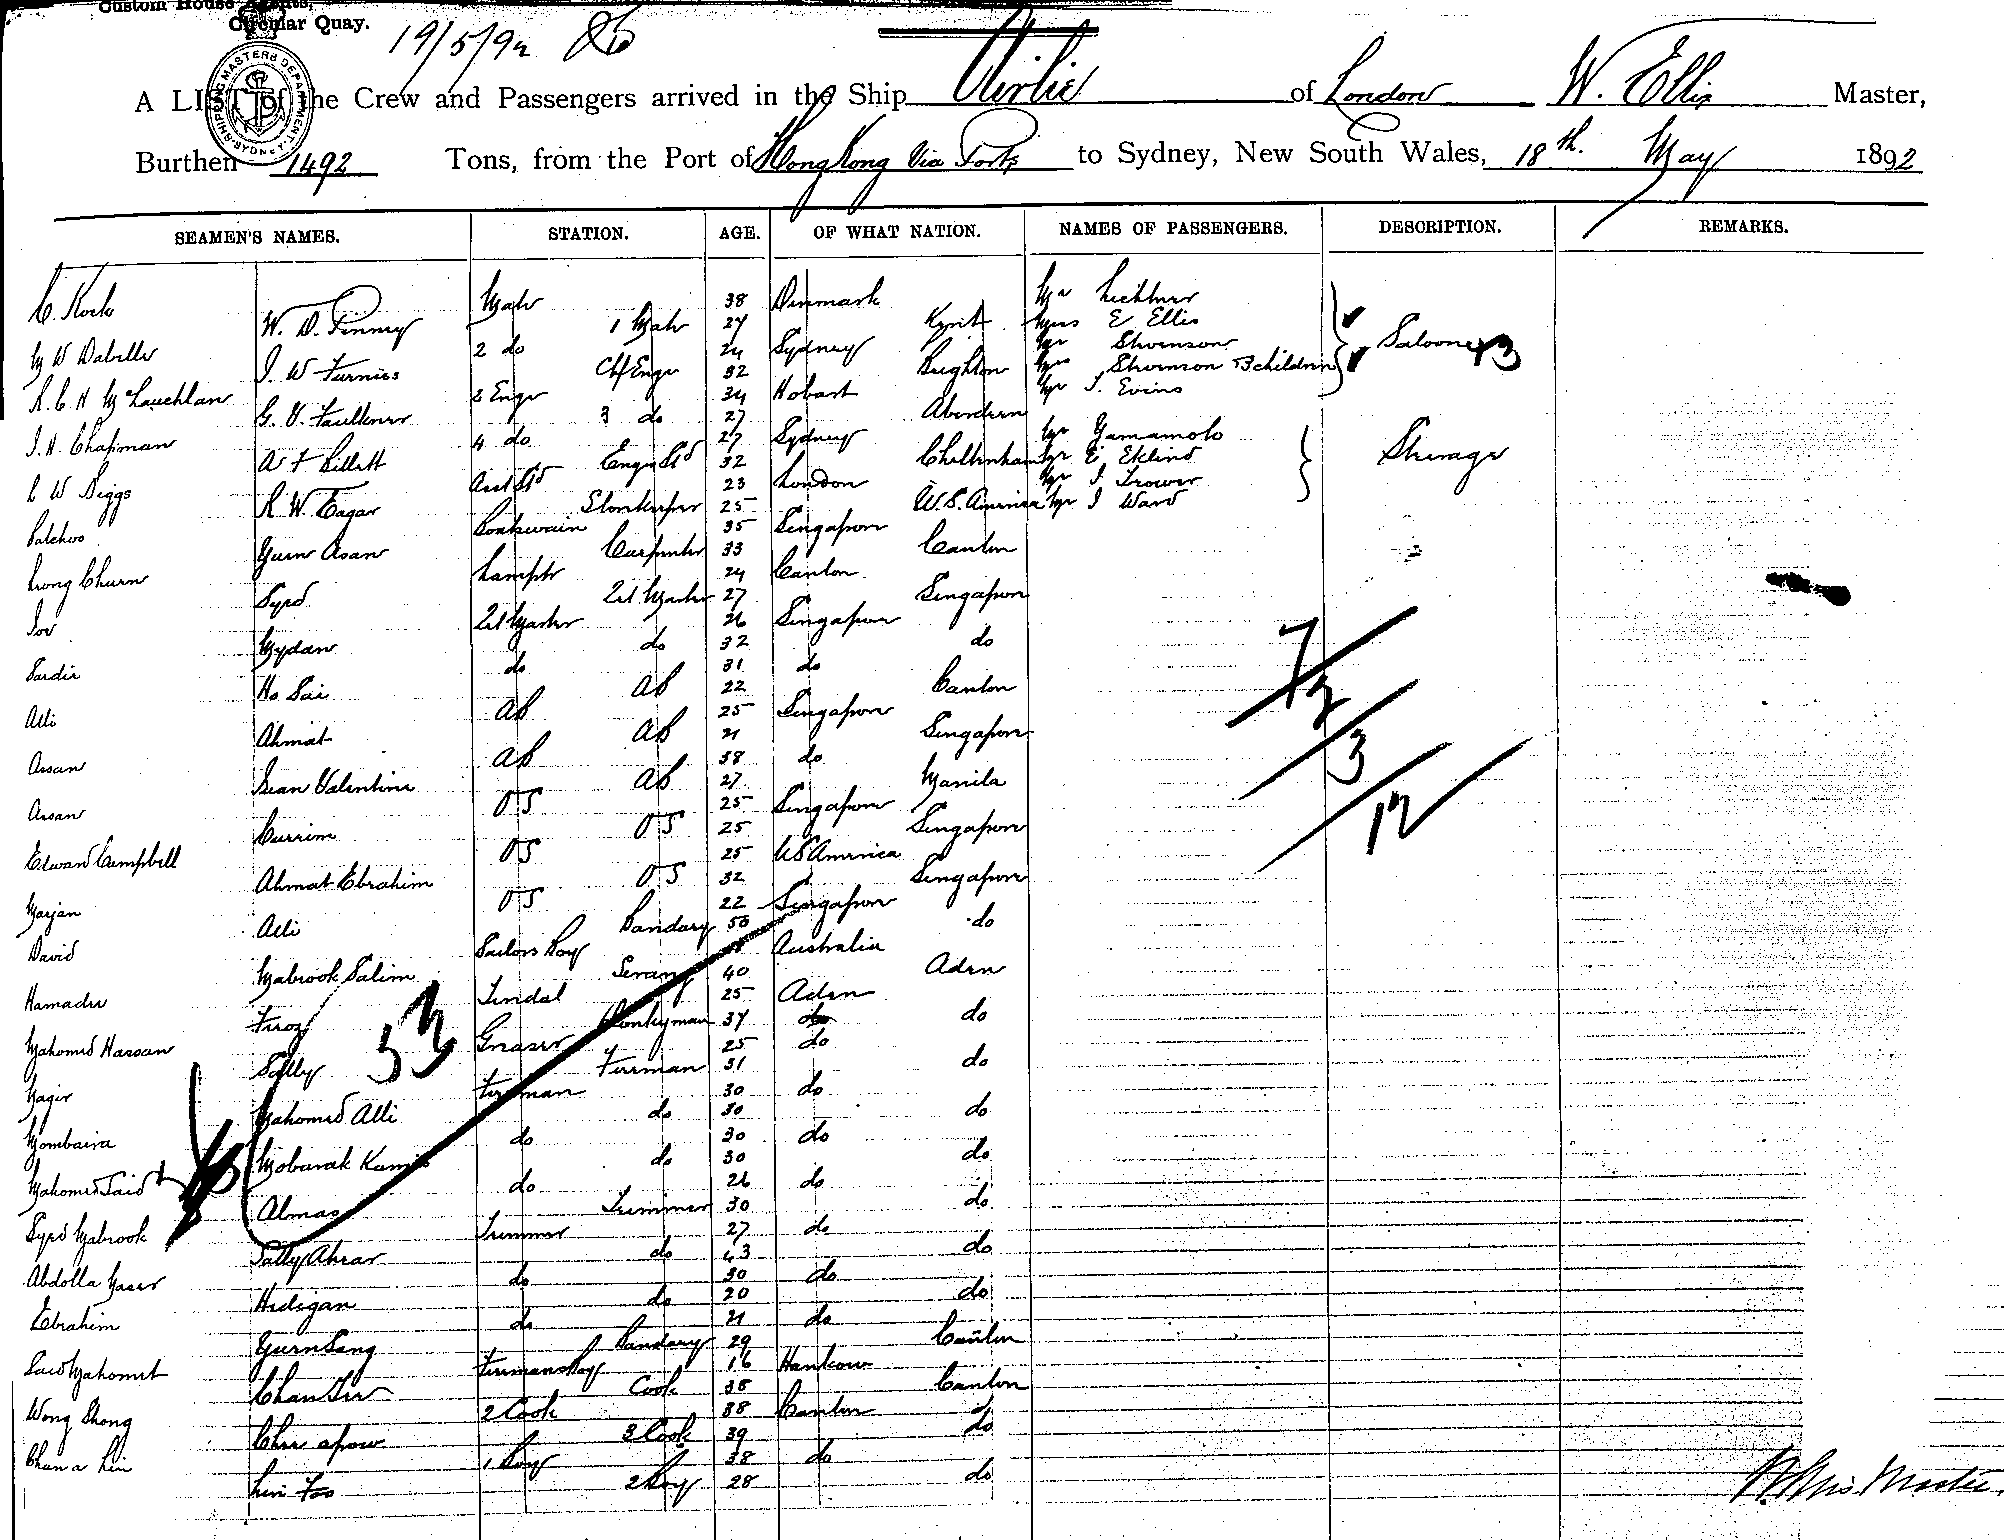 Custom House Agents,
Circular Quay.
19/5/92 86
SHIPPING MASTERS DEPARTMENT SYDNEY
A LIST of the Crew and Passengers arrived in the Ship Airlie of London W. Ellis Master,
Burthen 1492 Tons, from the Port of Hong Kong Via Ports to Sydney, New South Wales, 18th. May 1892
SEAMEN'S NAMES. STATION. AGE. OF WHAT NATION. NAMES OF PASSENGERS. DESCRIPTION. REMARKS.
C. Kock Mate 38 Denmark Mr
W. D. Pinney 1 Mate 27 Kent E Ellis
2 do 24 Sydney Mr Stevenson Saloon 3
J. W Furniss Chf Engr 32 Brighton Mrs Stevenson 3 children
R. C. H McLauchlan 2 Engr 34 Hobart Mr J. Evins
G. V. Faulkner 3 do 27 Aberdeen
J. H. Chapman 4 do 27 Sydney Mr Yamamoto
A F Lillett Engrs Std 32 Cheltenham Mr E Eklind Steerage
L W Biggs Asst Std 23 London Mr J Trower
R. W. Eagar Storekeeper 25 U.S. America Mr J Ward
Boatswain 35 Singapore
Yuen Asan Carpenter 33 Canton
Leong Churn Lamptr 24 Canton
Syed 2nd Master 27 Singapore
26 Singapore
Mydan do 32 do
Sardir do 31 do
Ho Sai AB 22 Canton
Alli AB 25 Singapore
Ahmat AB 21 Singapore
Assan AB 38 do
Sean Valentine AB 27 Manila
Assan OS 25 Singapore
Currim OS 25 Singapore
Edward Campbell OS 25 US America
Ahmat Ebrahim OS 32 Singapore
Marjan OS 22 Singapore
Alli Bandary 50 do
David Sailors Boy Australia
Mabrook Salim Serang 40 Aden
Hamadu Tindal 25 Aden
Firoz Donkeyman 37 do
Mahomed Hassan Greaser 25 do
Sally Fireman 31 do
Fireman 30 do
Mahomed Alli do 30 do
Mombaira do 30 do
Mobarak Kamis do 30 do
Mahomed Said do 26 do
Almas Trimmer 30 do
Syed Mabrook Trimmer 27 do
Sally Ahrar do 23 do
Abdolla Naser do 30 do
Hedigan do 20 do
Ebrahim do 21 do
Yuen Sang Bandary 29 Canton
Said Mahomet Firemans Boy 16 Hankow
Chan Cook 35 Canton
Wong Shong 2 Cook 38 Canton
Chee apow 3 Cook 39 do
Chan a Lin 1 Boy 38 do
Lin Foo 2 Boy 28 do
53
7
2
3
12
W. Ellis Master.